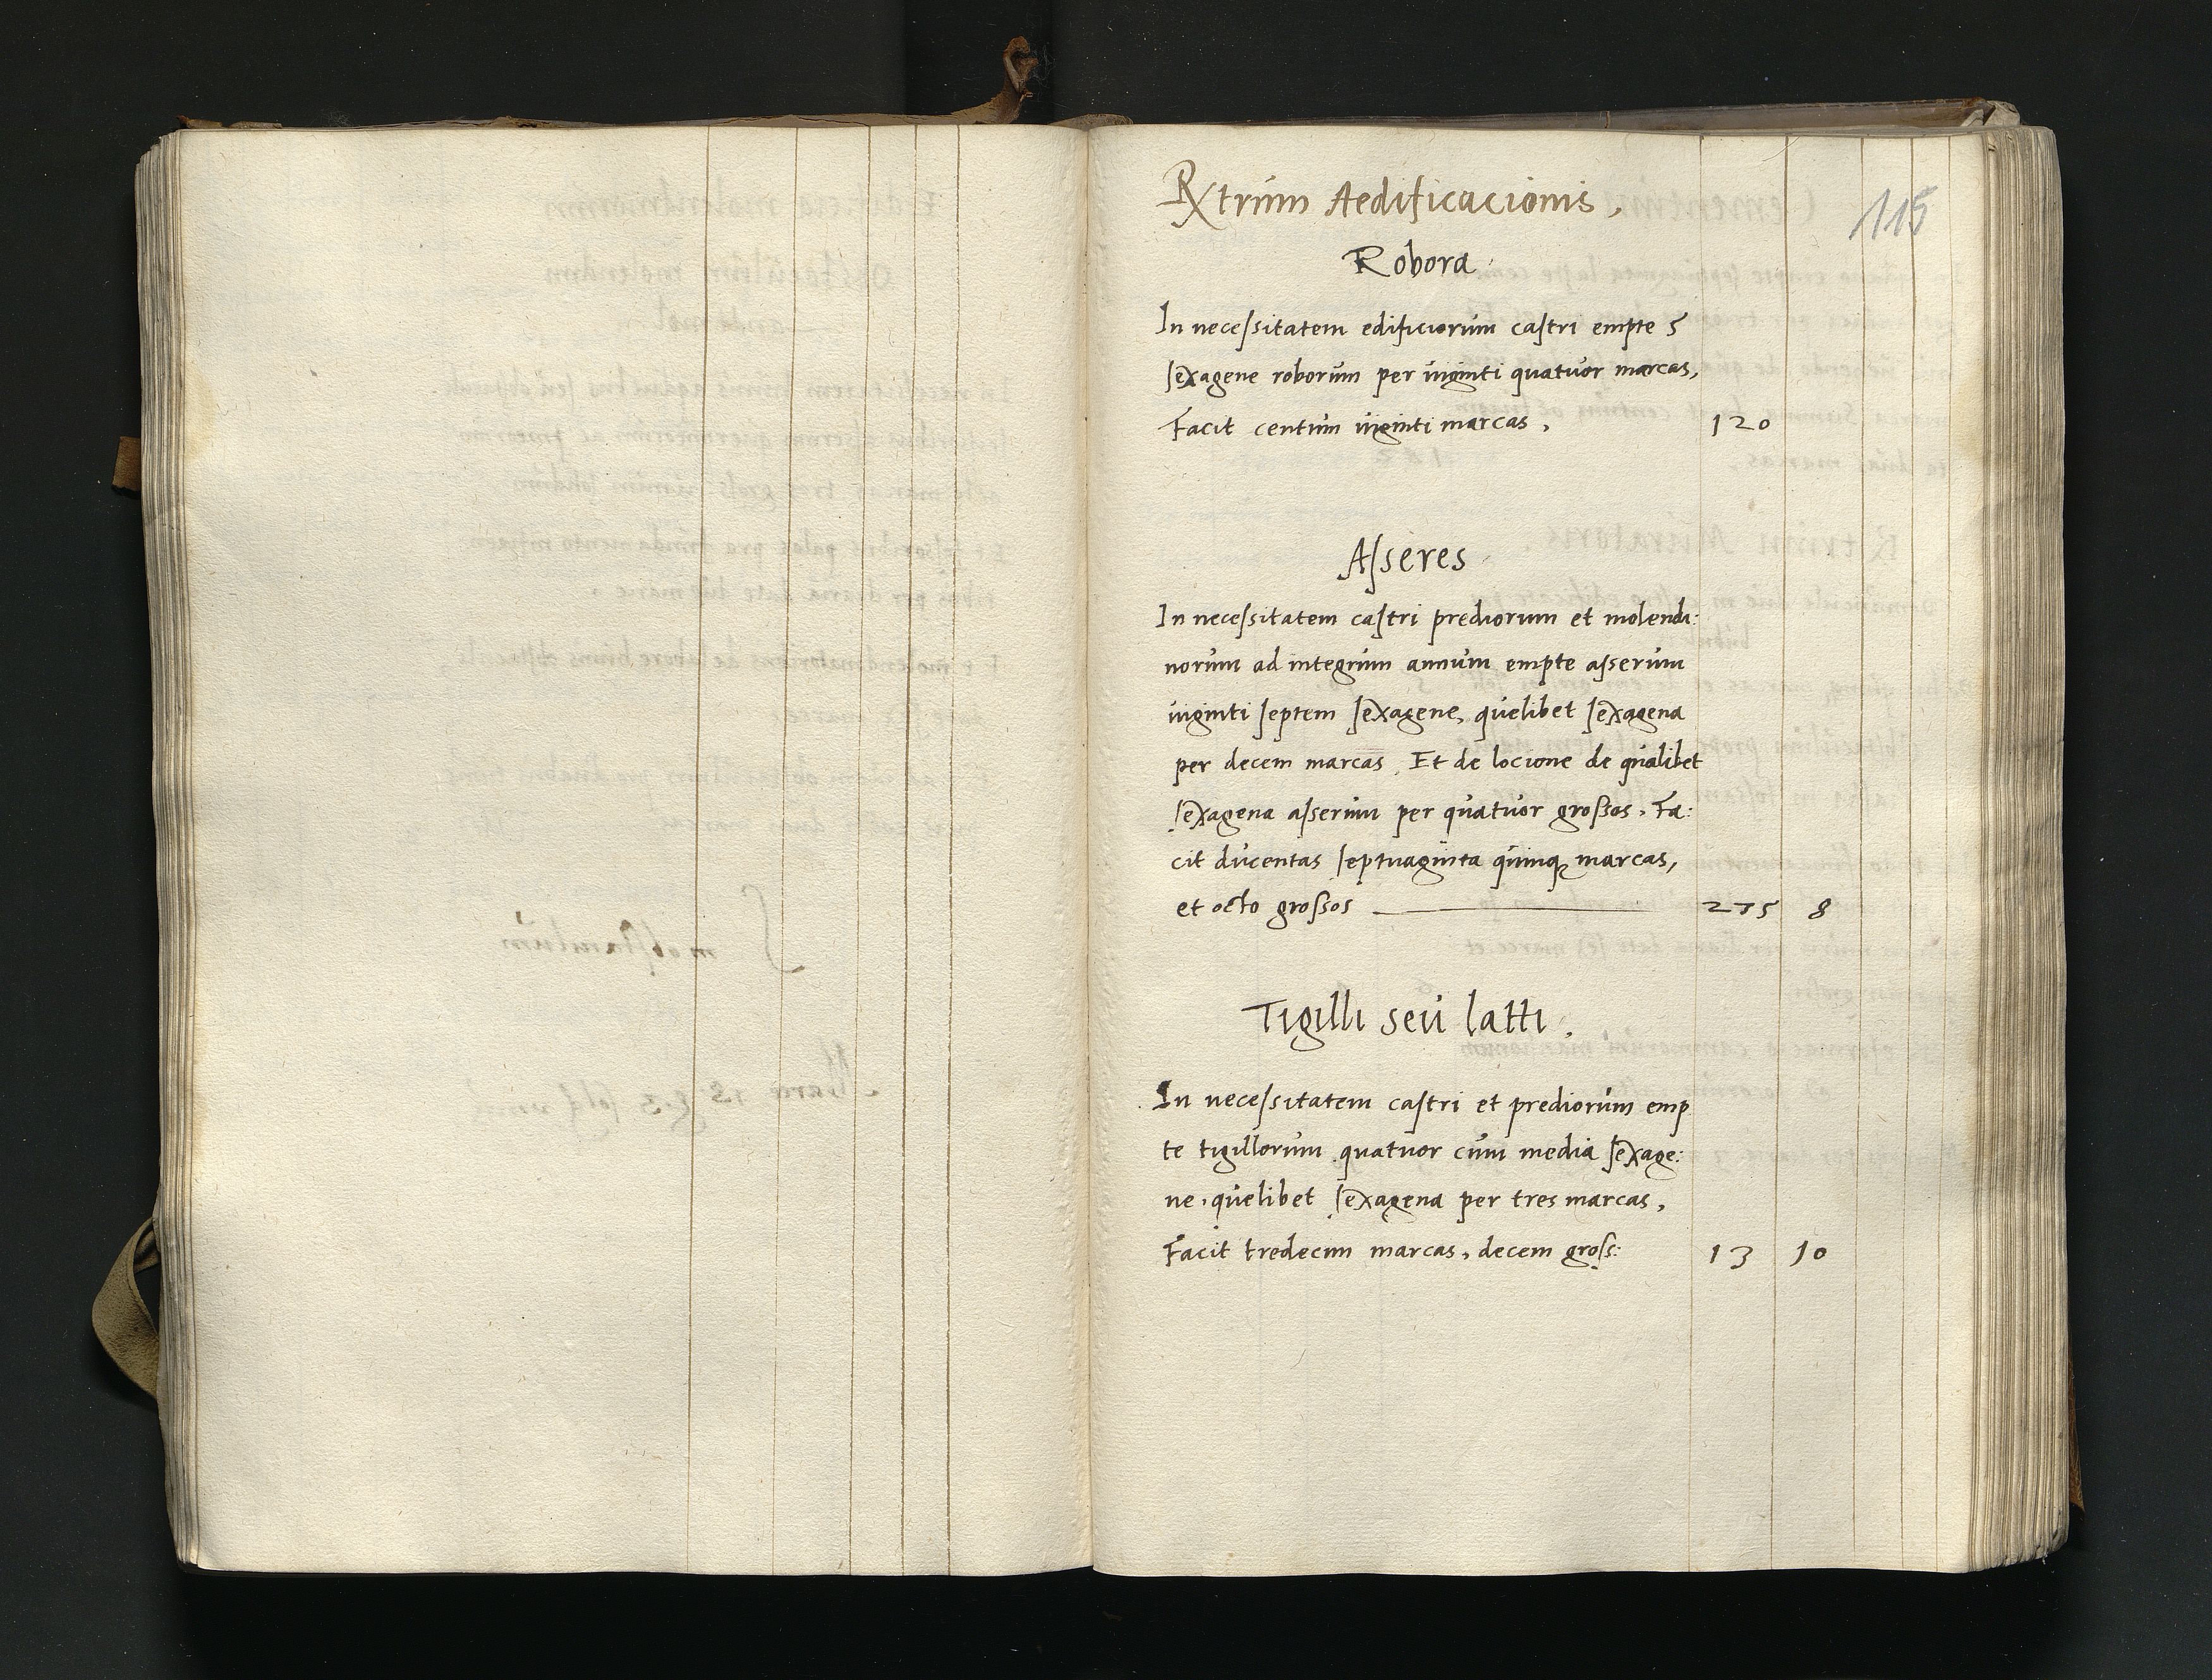 Rxtrum Aedificacionis,
115
Robora
In necessitatem edificiorum castri empte 5
sexagene roborum per viginti quatuor marcas,
Facit centum viginti marcas, 120
Asseres
In necessitatem castri prediorum et molendi:
norum ad integrum annum empte asserum
viginti septem sexagene, quelibet sexagena
per decem marcas. Et de locione de qualibet
sexagena asserum per quatuor grossos. Fa:
cit ducentas septuaginta quinq marcas,
et octo grossos 275 8
Tigilli seu latti.
In necessitatem castri et prediorum emp
te tigillorum quatuor cum media sexage:
ne, quelibet sexagena per tres marcas,
Facit tredecim marcas, decem gross: 13 10